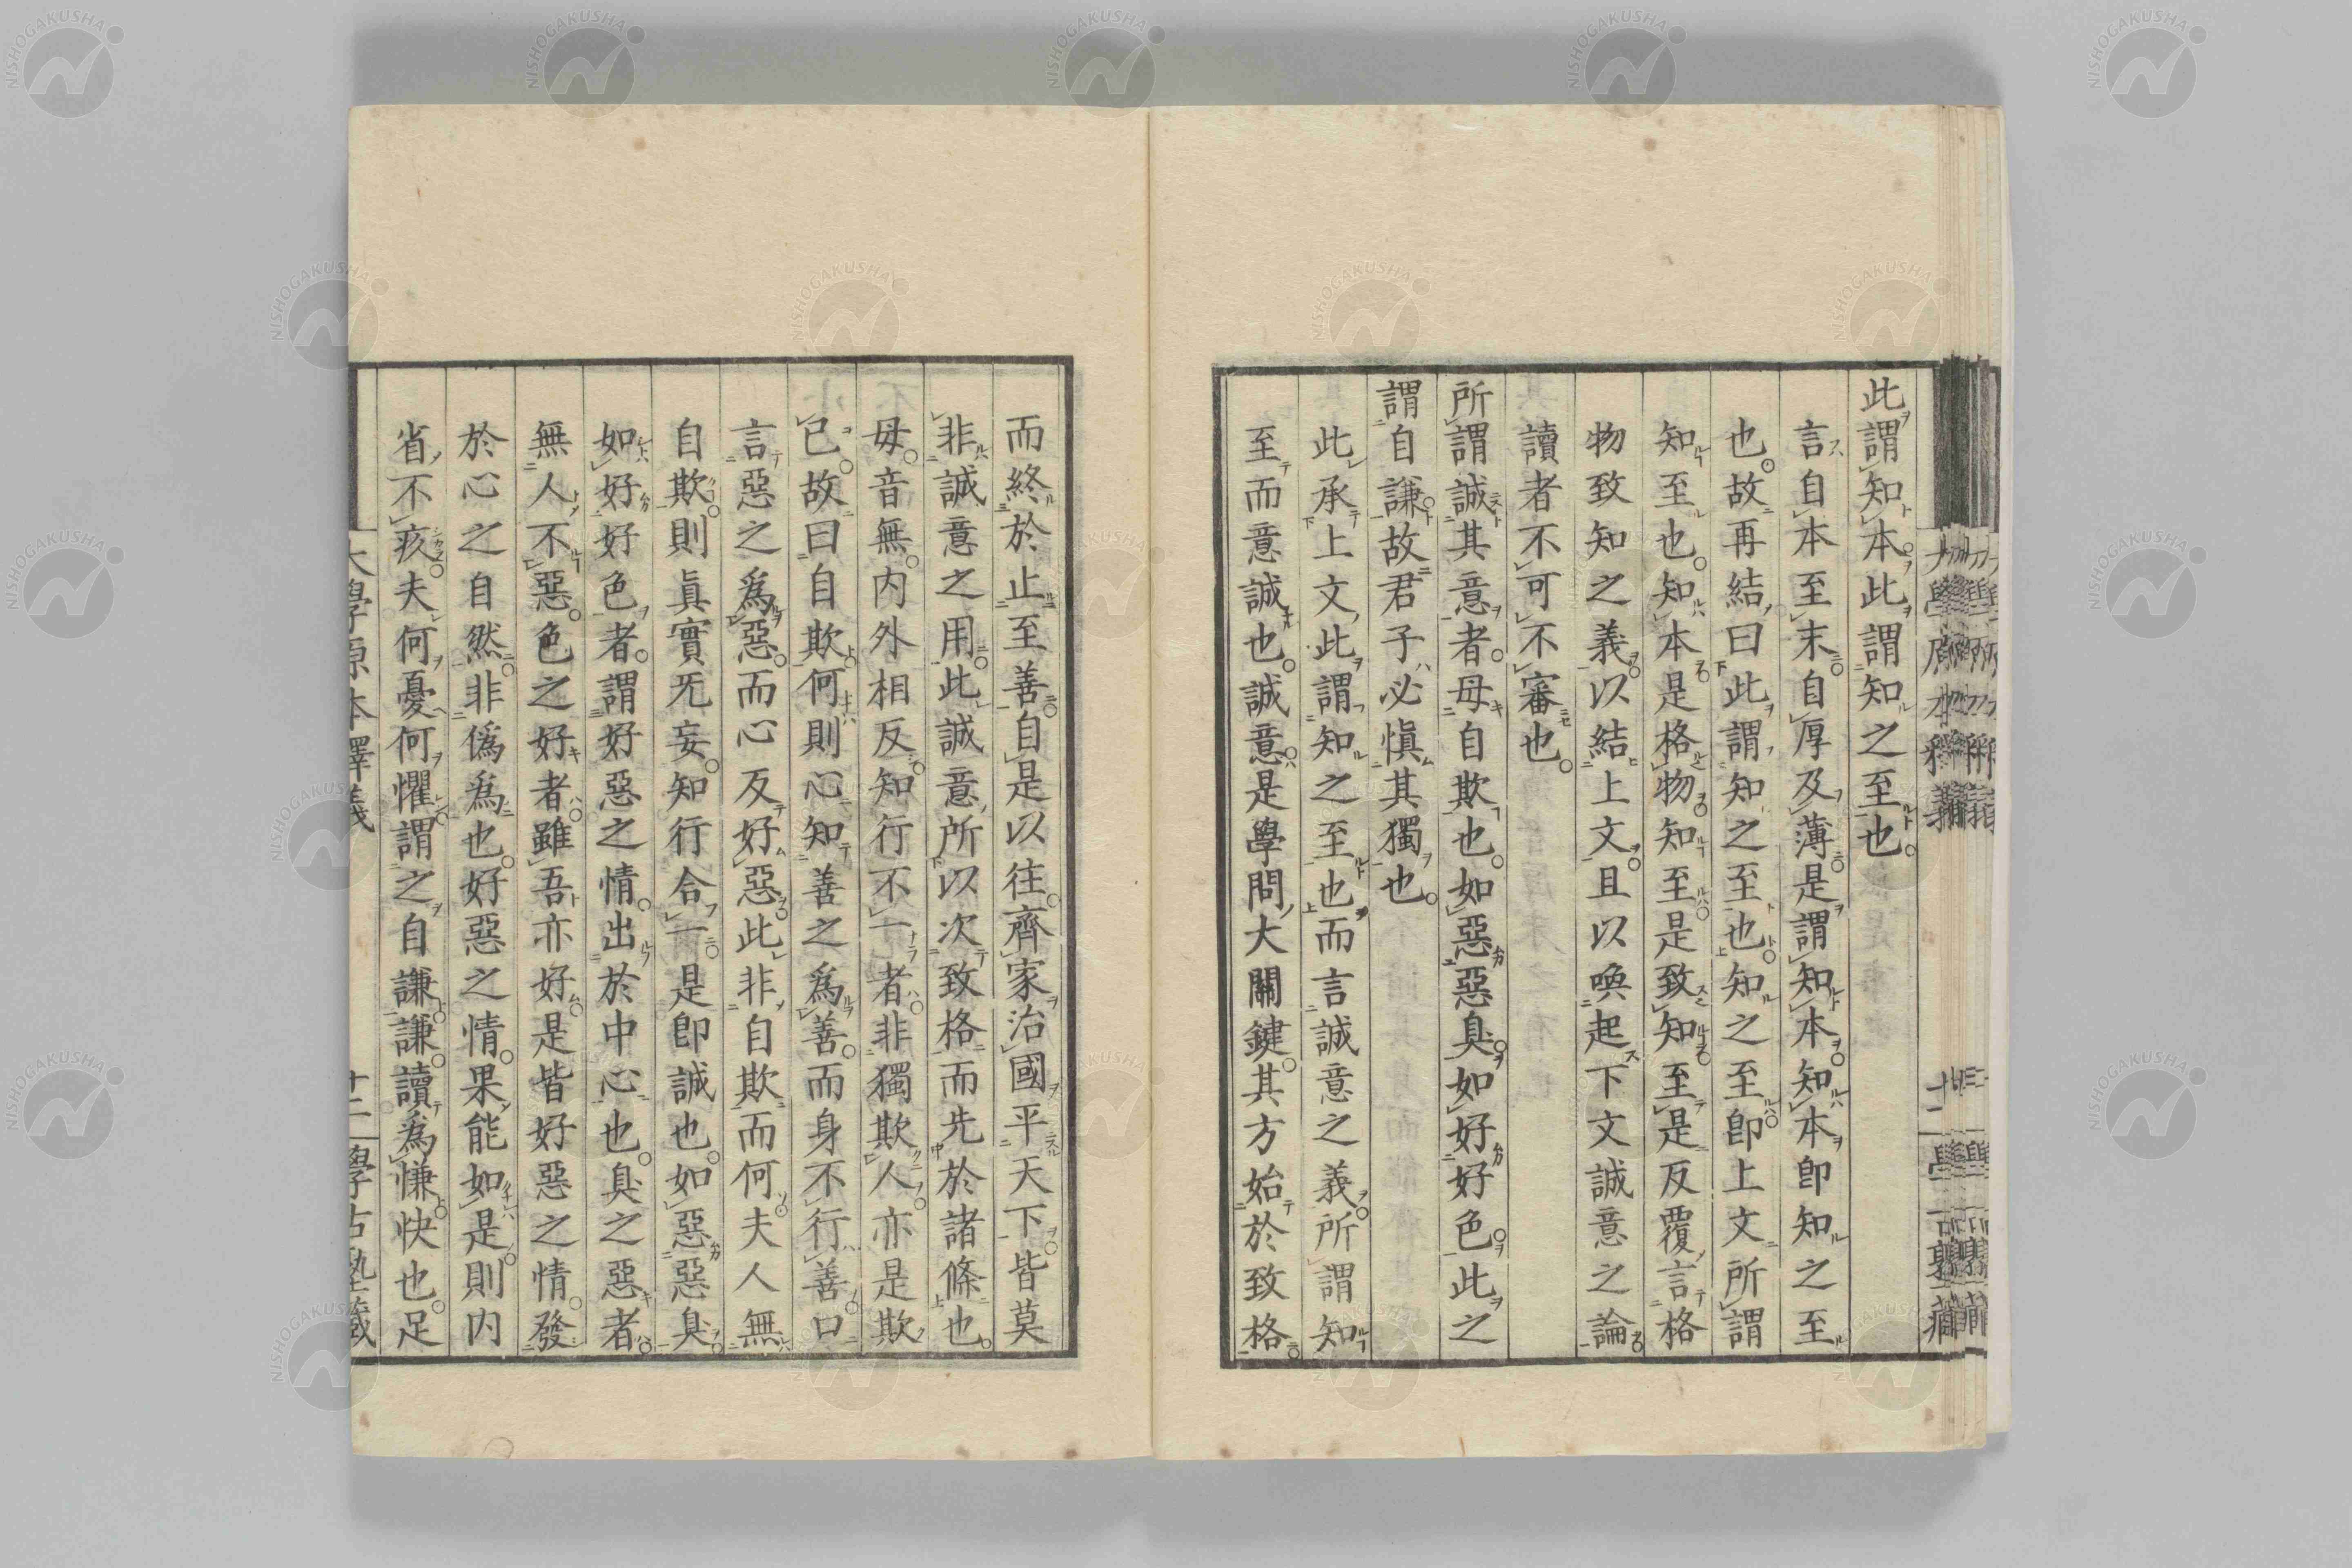 此謂知本此謂知之至也
言自本至末自厚及薄是謂知本知本卽知之至
也故再結曰此謂知之至也知之至卽上文所謂
知至也知本是格物知至是致知至是反覆言格
物致知之義以結上文且以喚起下文誠意之論
讀者不可不審也
所謂誠其意者毋自欺也如惡惡臭如好好色此之
謂自謙故君子必愼其獨也
此承上文此謂知之至也而言誠意之義所謂知
至而意誠也誠意是學問大關鍵其方始於致格
而終於止至善自是以往齊家治國平天下皆莫
非誠意之用此誠意所以次致格而先於諸條也
毋音無内外相反知行不一者非獨欺人亦是欺
已故曰自欺何則心知善之爲善而身不行善口
言惡之爲惡而心反好惡此非自欺而何夫人無
自欺則眞實无妄知行合一是卽誠也如惡惡臭
如好好色者謂好惡之情出於中心也臭之惡者
無人不惡色之好者雖吾亦好是皆好惡之情發
於心之自然非僞爲也好惡之情果能如是則内
省不疚夫何憂何懼謂之自謙謙讀爲慊快也足
大學原本釋義 十二 學古塾藏